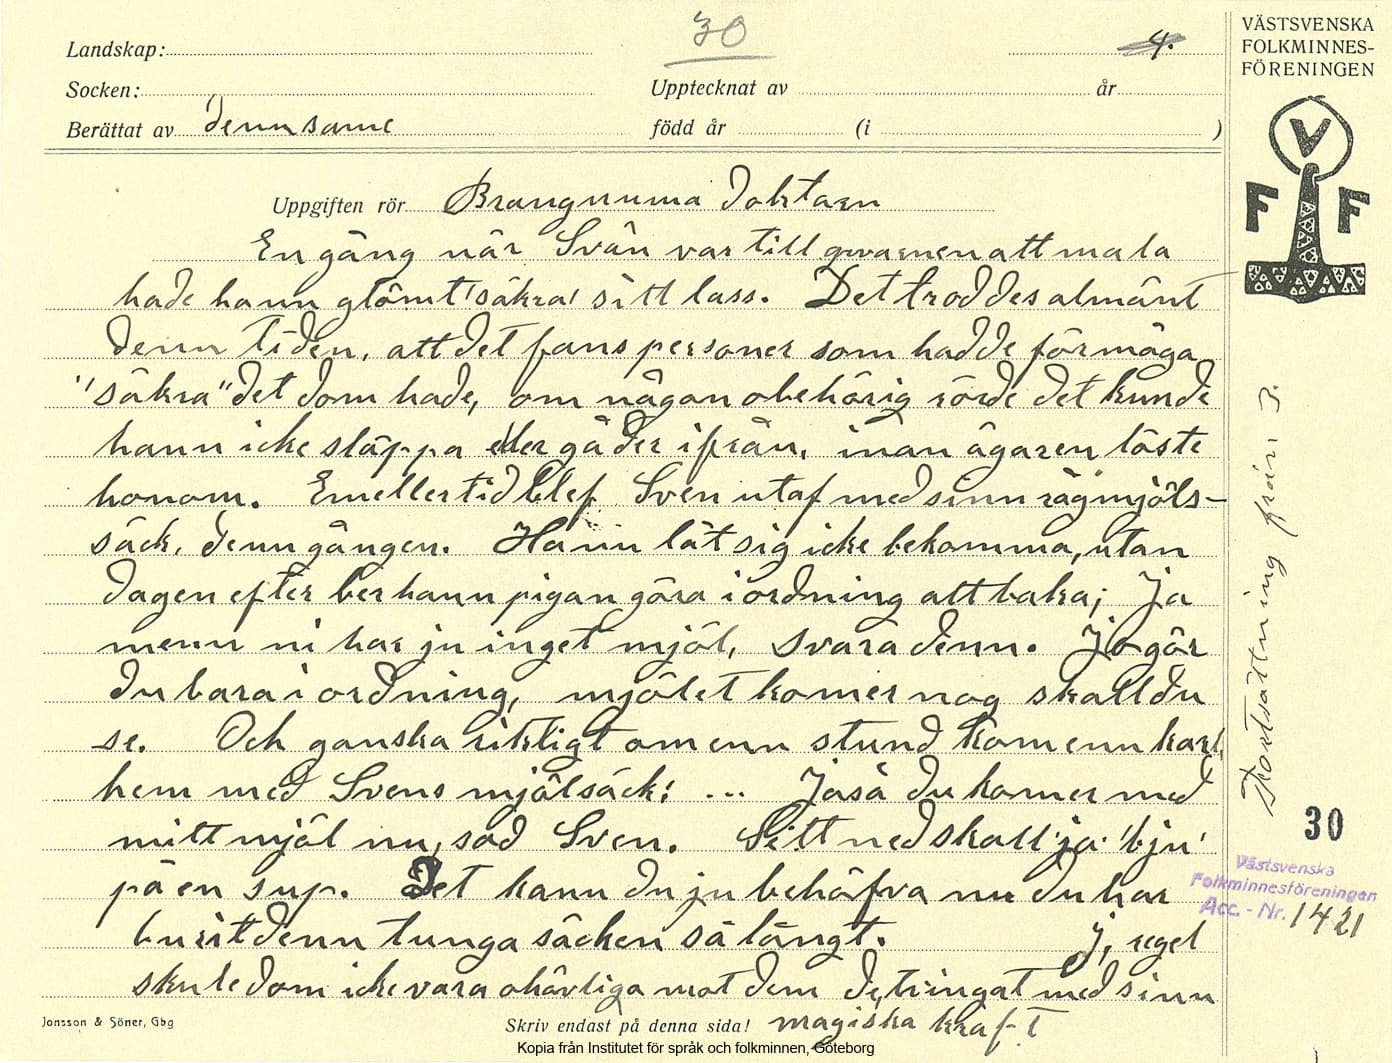 30
4.
Landskap:
Socken: Upptecknat av år
Berättat av denn same född år (i )
Uppgiften rör Brangnuma doktorn
En gång när Svän var till qwarnen att mala
hade hann glömt 'säkra' sitt lass. Det troddes almänt
denn tiden, att det fans personer som hadde förmåga
"säkra" det dom hade, om någon obehörig rörde det kunde
hann icke släppa eller gå der ifrån, inan ägaren löste
honom. Emellertid blef Sven utaf med sinn rågmjöls-
säck, denn gången. Hann lät sig icke bekomma, utan
dagen efter ber hann pigan göra i ordning att baka; Ja
menn ni har ju inget mjöl, svara denn. Jo gör
du bara i ordning, mjölet komer nog skall du
se. Och ganska riktigt om enn stund kom enn karl
hem med Svens mjölsäck: ... Jaså du komer med
mitt mjöl nu, sad Sven. Sitt ned skall 'ja' 'bju'
på en sup. Det kann du ju behöfva nu du har
burit denn tunga säcken så långt. I, regel
skule dom icke vara ohövliga mot dem de, tvingat med sinn
magiska kraft
Jonsson & Söner, Gbg
Skriv endast på denna sida!
Kopia från Institutet för språk och folkminnen, Göteborg
VÄSTSVENSKA
FOLKMINNES-
FÖRENINGEN
V
F F
Fortsättning från 3.
30
Västsvenska
Folkminnesföreningen
Acc. - Nr. 1421